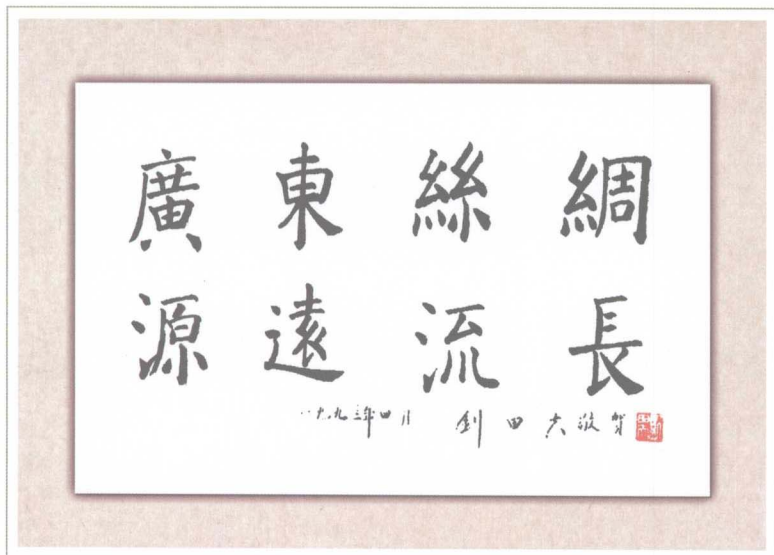 廣東絲綢
源遠流長
一九九三年四月 劉田夫敬賀